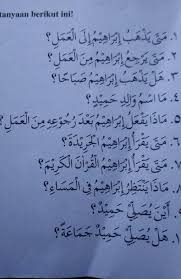 tanyaan berikut ini!
١. مَتَى يَذْهَبُ إِبْرَاهِيْمُ إِلَى الْعَمَلِ؟
٢. مَتَى يَرْجِعُ إِبْرَاهِيْمُ مِنَ الْعَمَلِ؟
٣. هَلْ يَذْهَبُ إِبْرَاهِيْمُ صَبَاحًا؟
٤. مَا اسْمُ وَالِدِ حَمِيْدٍ؟
٥. مَاذَا يَفْعَلُ إِبْرَاهِيْمُ بَعْدَ رُجُوْعِهِ مِنَ الْعَمَلِ؟
٦. مَتَى يَقْرَأُ إِبْرَاهِيْمُ الْجَرِيْدَةَ؟
٧. مَتَى يَقْرَأُ إِبْرَاهِيْمُ الْقُرْآنَ الْكَرِيْمَ؟
٨. مَاذَا يَنْتَظِرُ إِبْرَاهِيْمُ فِي الْمَسَاءِ؟
٩. أَيْنَ يُصَلِّيْ حَمِيْدٌ؟
١. هَلْ يُصَلِّيْ حَمِيْدٌ جَمَاعَةً؟